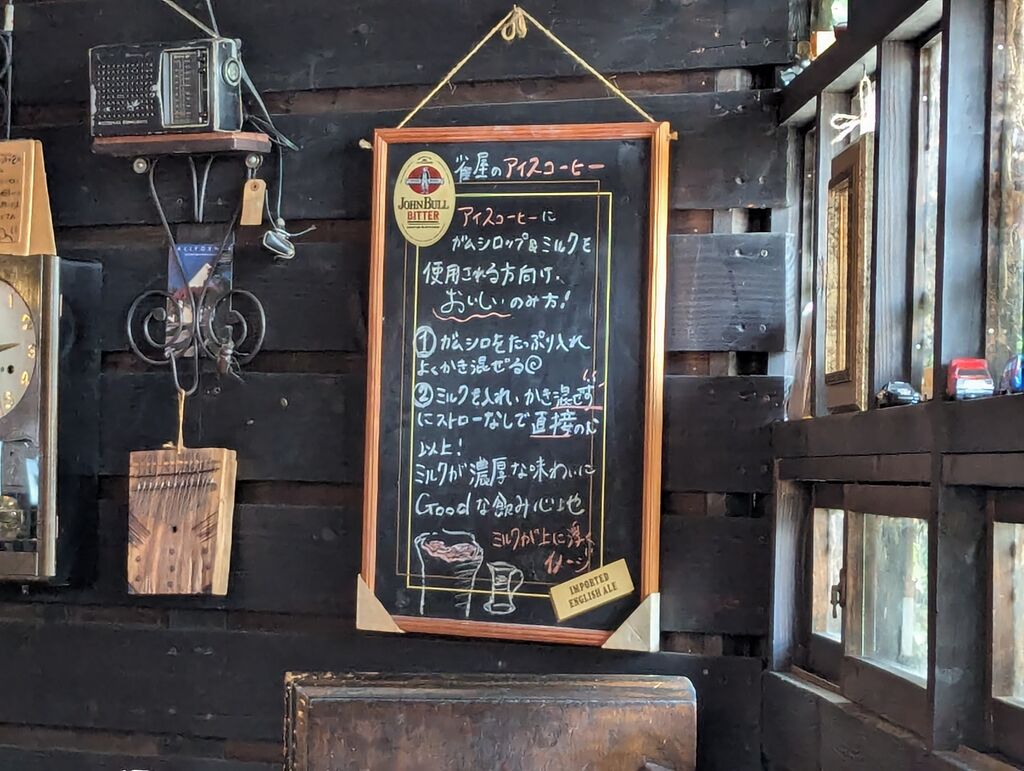 雀屋のアイスコーヒー
JOHN BULL
BITTER
アイスコーヒーに
ガムシロップ&ミルクを
使用される方向け、
おいしいのみ方!
① ガムシロをたっぷり入れ
よくかき混ぜる
② ミルクを入れ、かき混ぜず
にストローなしで直接のむ
以上!
ミルクが濃厚な味わいに
Goodな飲み心地
ミルクが上に浮く
イメージ
IMPORTED
ENGLISH ALE